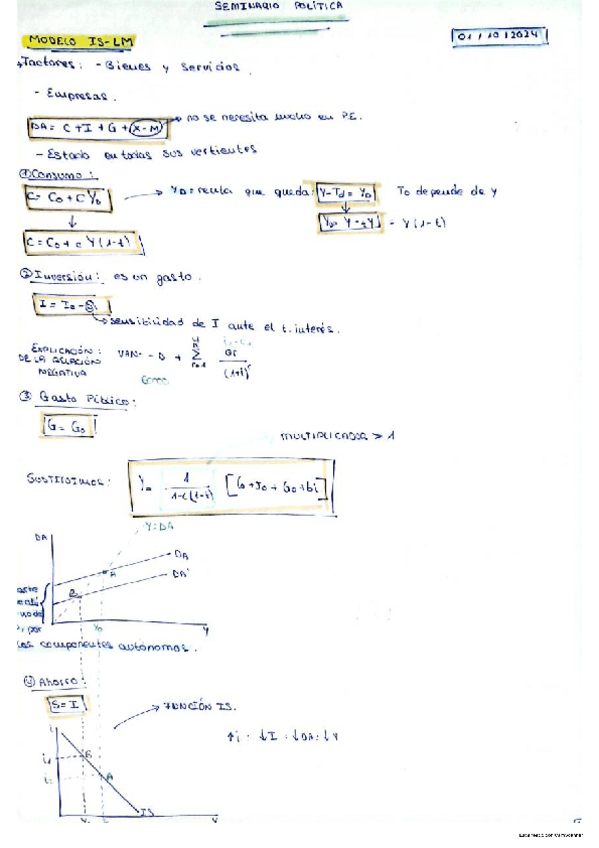 SEMINARIO POLÍTICA
MODELO IS-LM
01/10/2024
Factores: - Bienes y servicios.
- Empresas.
DA = C + I + G + (X-M) → no se necesita mucho en PE.
- Estado en todas sus vertientes
① Consumo:
C = C₀ + c Y_D → Y_D = renta que queda: Y - T_d = Y_D To depende de Y
C = C₀ + c Y (1-t)
Y_D = Y - tY = Y (1-t)
② Inversión: es un gasto.
I = I₀ -
sensibilidad de I ante el t. interés.
EXPLICACIÓN: DE LA RELACIÓN NEGATIVA
VAN = - D + Σ
(1+i)
③ Gasto Público:
G = G₀
MULTIPLICADOR > 1
SUSTITUIMOS: Y = 1 / 1-c(1-t)
Y=DA
DA
DA
A
DA'
B
Y₀
Y
los componentes autónomos.
④ Ahorro:
S = I
→ FUNCIÓN IS.
↑i : ↓I : ↓DA : ↓Y
i
i₁
B
i₀
A
IS
Y